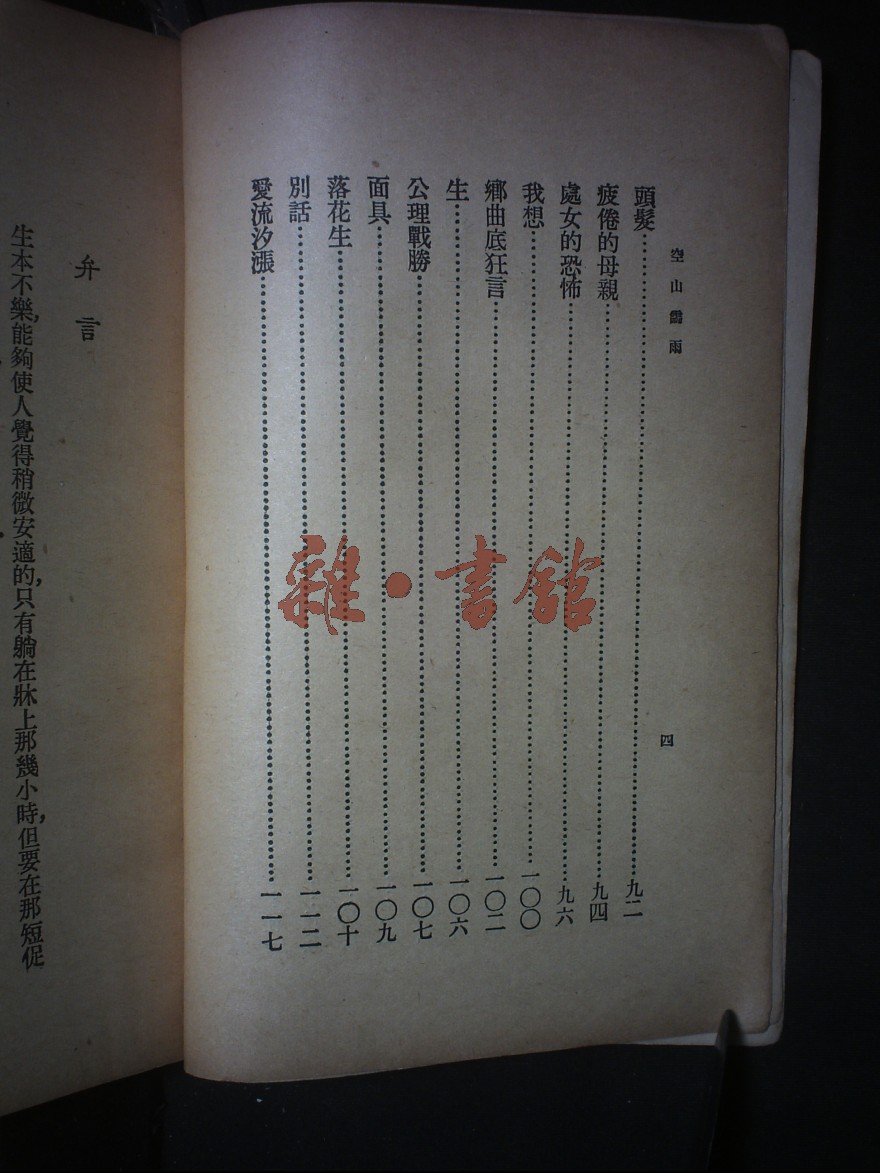 空山靈雨
四
頭髮……九二
疲倦的母親……九四
處女的恐怖……九六
我想……一〇〇
鄉曲底狂言……一〇二
生……一〇六
公理戰勝……一〇七
面具……一〇九
落花生……一〇十
別話……一一二
愛流汐漲……一一七
弁言
生本不樂，能夠使人覺得稍微安適的，只有躺在牀上那幾小時，但要在那短促
雜·書館